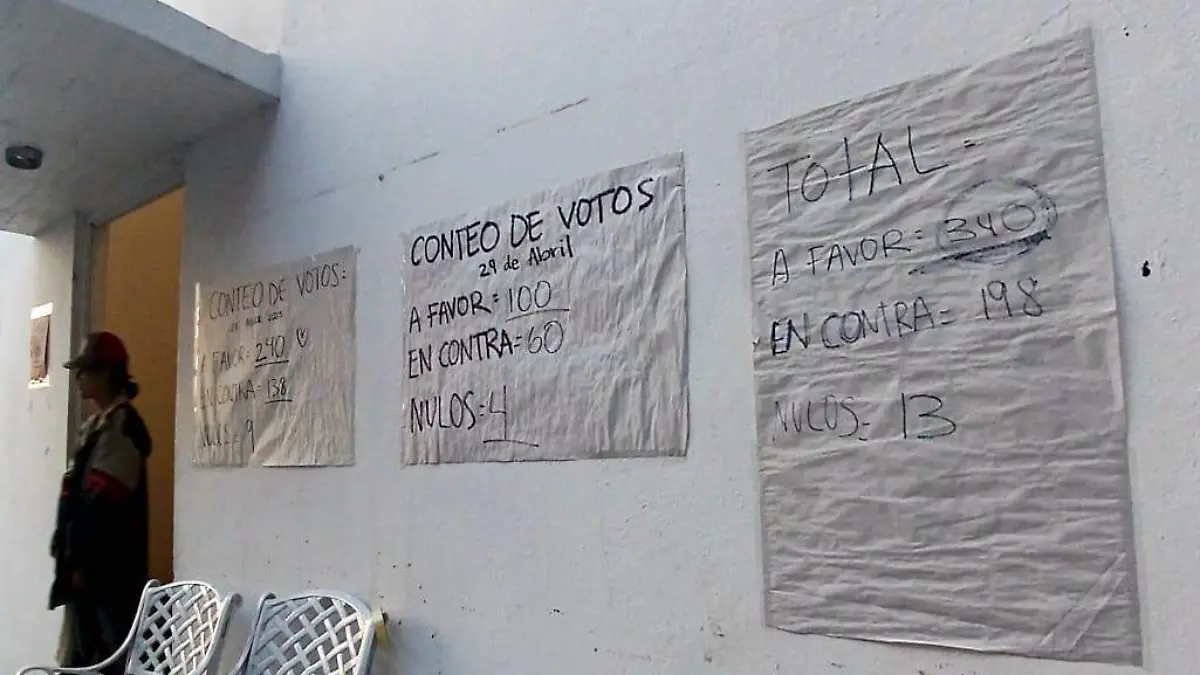 CONTEO DE VOTOS:
A FAVOR = 240 ♡
EN CONTRA = 138
NULOS = 9
CONTEO DE VOTOS
29 de Abril
A FAVOR = 100
EN CONTRA = 60
NULOS = 4
TOTAL =
A FAVOR = 340
EN CONTRA = 198
NULOS = 13